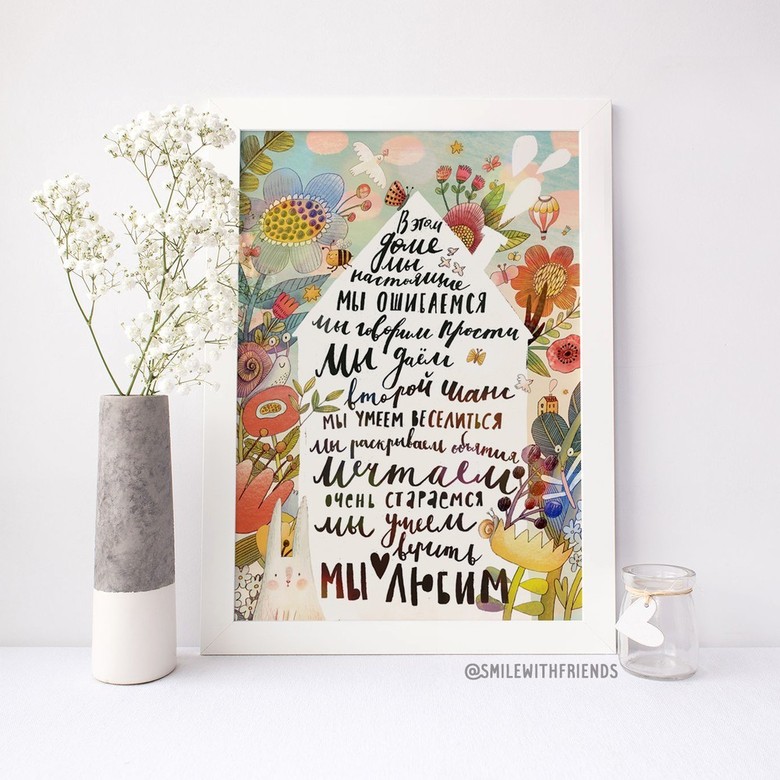 В этом
доме
мы
настоящие
МЫ ОШИБАЕМСЯ
мы говорим прости
Мы даём
второй шанс
МЫ УМЕЕМ ВЕСЕЛИТЬСЯ
мы раскрываем объятия
мечтаем
ОЧЕНЬ СТАРАЕМСЯ
мы умеем
верить
МЫ ЛЮБИМ
@SMILEWITHFRIENDS